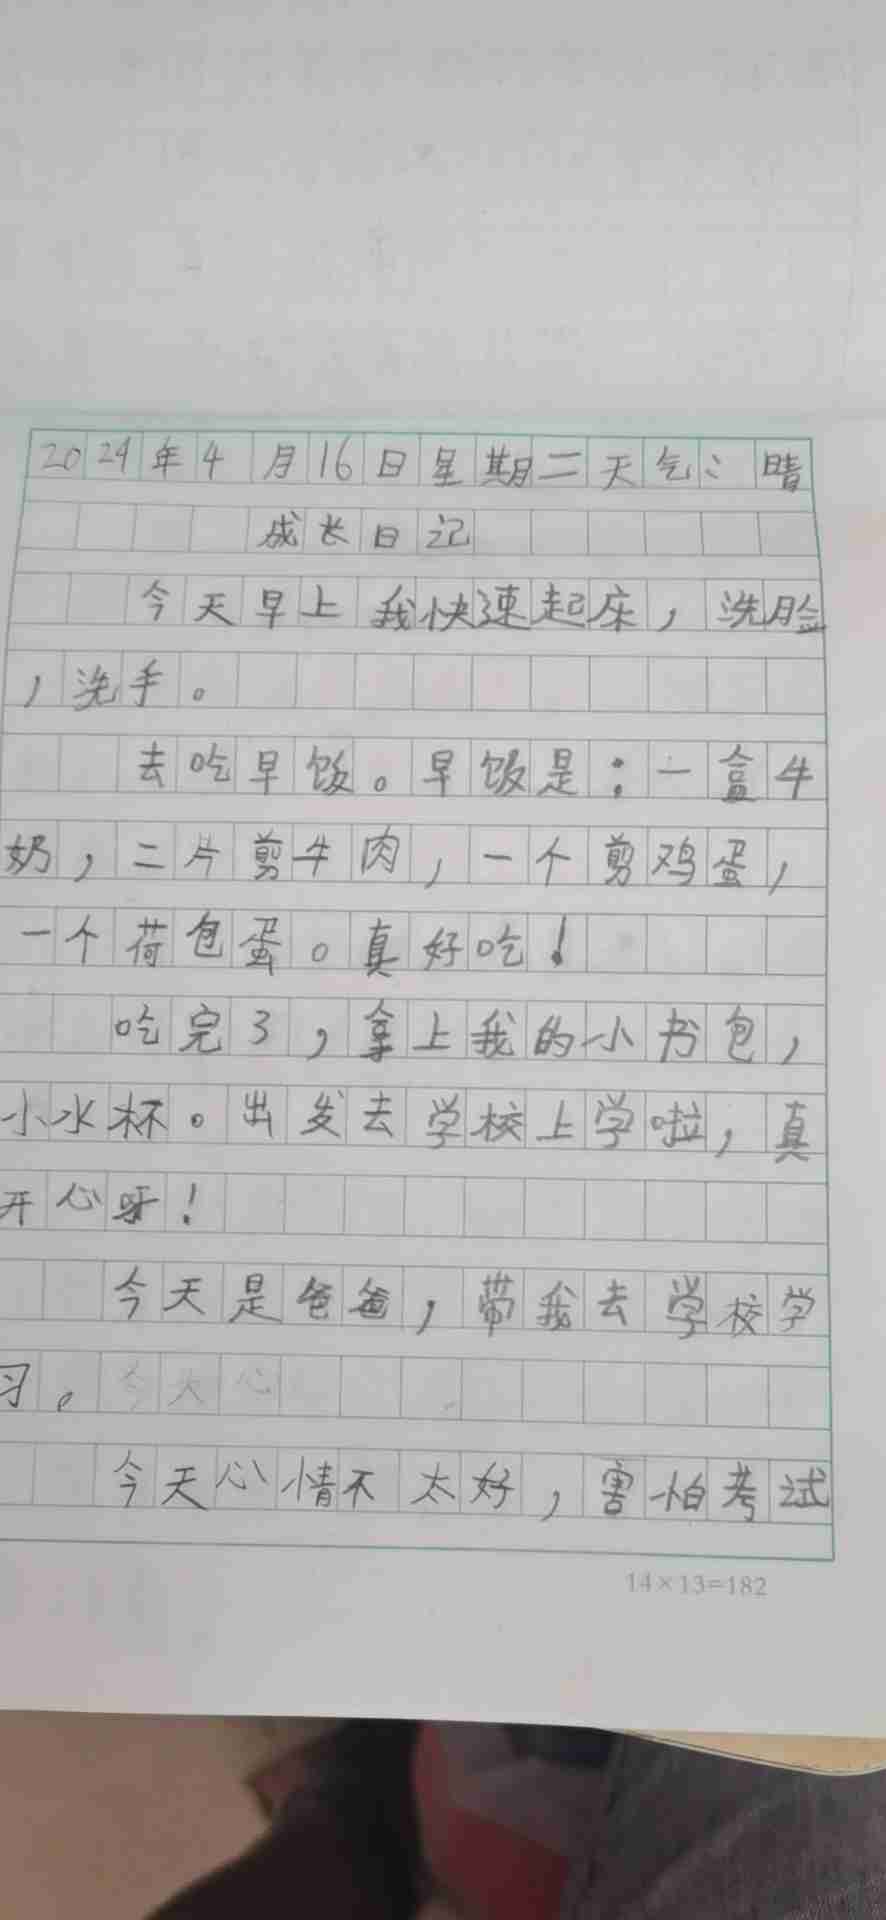 2024年4月16日星期二天气:晴
成长日记
今天早上我快速起床,洗脸
,洗手。
去吃早饭。早饭是:一盒牛
奶,二片剪牛肉,一个剪鸡蛋,
一个荷包蛋。真好吃!
吃完了,拿上我的小书包,
小水杯。出发去学校上学啦,真
开心呀!
今天是爸爸,带我去学校学
习。今天心
今天心情不太好,害怕考试
14×13=182